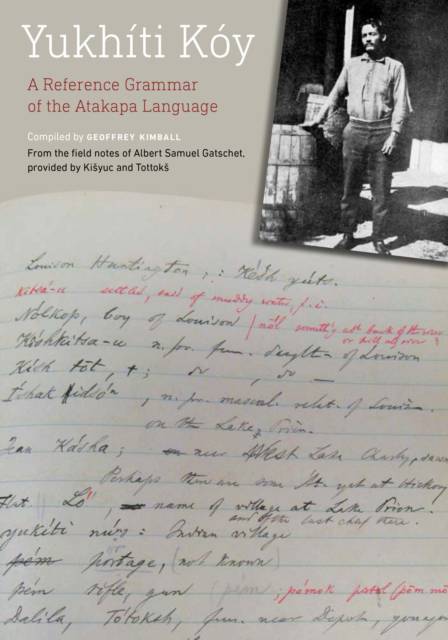 Yukhíti Kóy
A Reference Grammar
of the Atakapa Language
Compiled by GEOFFREY KIMBALL
From the field notes of Albert Samuel Gatschet,
provided by Kišyuc and Tottokš
Louison Huntington,
settled, said of muddy water,
boy of Louison
Kishkítsa-u n. pr. fem. daughter of Louison
Kish tōt,
n. pr. mascul. relat. of Louison.
on the Lake Prien.
near West Lake Charley,
Perhaps there are some yet at Hickory
name of village at Lake Prien.
and of the last chief there.
yukíti : Indian village
pém portage, (not known)
pém rifle, gun (pém) ; pémok pistol
Dalíla, Tótoksh, fem. near Depot,